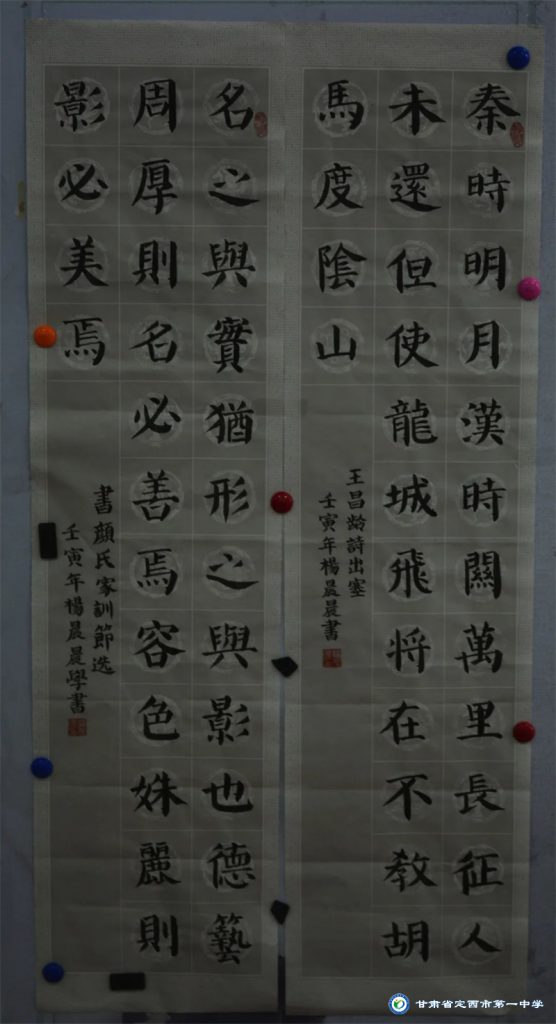 秦時明月漢時關萬里長征人
未還但使龍城飛将在不教胡
馬度陰山
王昌龄詩出塞
壬寅年楊晨晨書
名之與實猶形之與影也德藝
周厚則名必善焉容色姝麗則
影必美焉
書顔氏家訓節选
壬寅年楊晨晨學書
甘肃省定西市第一中学